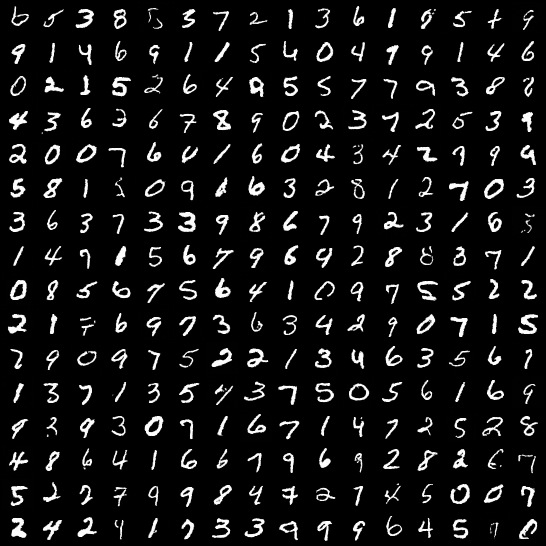 6 5 3 8 5 3 7 2 1 3 6 1 8 5 4 9
9 1 4 6 9 1 1 5 4 0 4 9 9 1 4 6
0 2 1 5 2 6 4 9 5 5 7 7 9 3 8 8
4 3 6 3 6 7 8 9 0 2 3 7 2 5 3 9
2 0 0 7 6 0 1 6 0 4 3 4 2 9 9 9
5 8 1 5 0 9 1 6 3 2 8 1 2 7 0 3
3 6 3 7 3 3 9 8 6 7 9 2 3 1 6 5
1 4 9 1 5 6 7 9 6 9 2 8 8 3 7 1
0 8 5 6 7 5 6 4 1 0 9 7 5 5 2 2
2 1 7 6 9 7 3 6 3 4 2 9 0 7 1 5
7 9 0 9 7 5 2 2 1 3 4 6 3 5 6 1
1 3 7 1 3 5 4 3 7 5 0 5 6 1 6 9
9 3 9 3 0 7 1 6 7 1 4 7 2 5 2 8
4 8 6 4 1 6 6 7 9 6 9 2 8 2 6 7
5 2 7 7 9 9 8 4 7 2 7 4 5 0 0 7
2 4 2 4 1 7 3 3 9 9 9 6 4 5 9 8